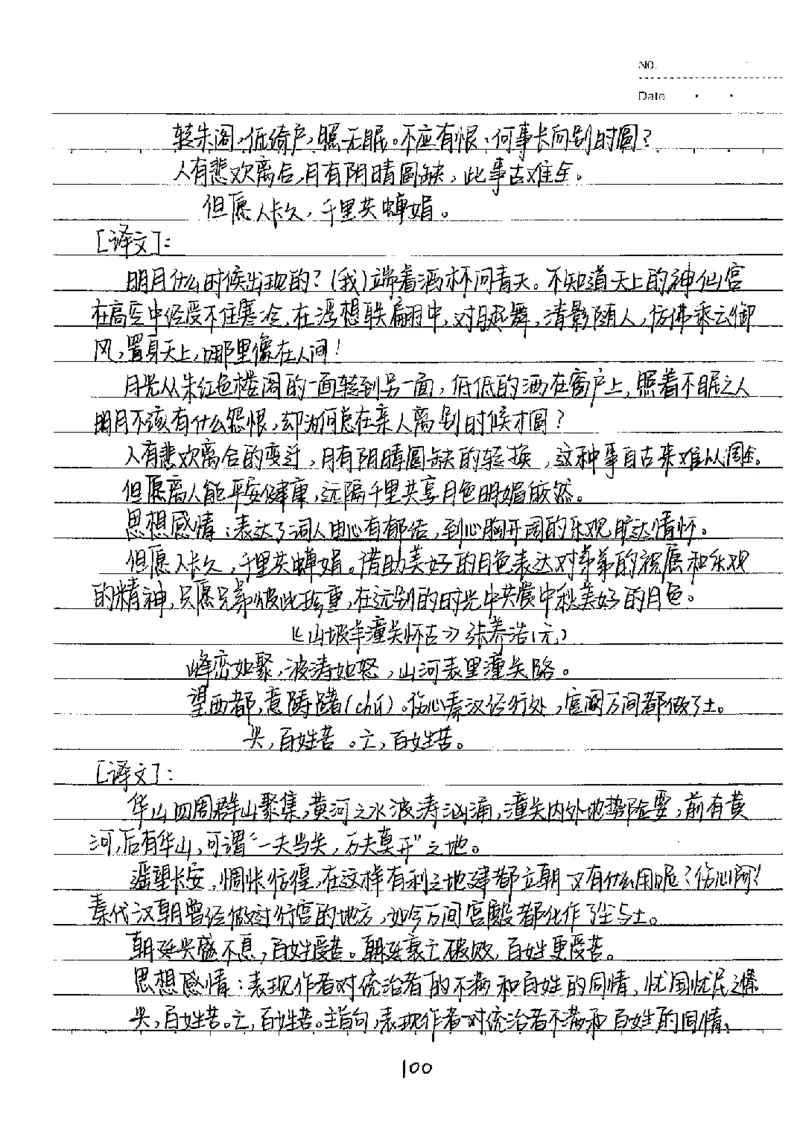 No.
Date
转朱阁,低绮户,照无眠。不应有恨,何事长向别时圆?
人有悲欢离合,月有阴晴圆缺,此事古难全。
但愿人长久,千里共蝉娟。
[译文]:
明月什么时候出现的?(我)端着酒杯问青天。不知道天上的神仙宫
在高空中经受不住寒冷,在浮想联翩中,对月起舞,清影随人,仿佛乘云御
风,置身天上,哪里像在人间!
月光从朱红色楼阁的一面转到另一面,低低的洒在窗户上,照着不眠之人
明月不该有什么怨恨,却为何总在亲人离别时候才圆?
人有悲欢离合的变迁,月有阴晴圆缺的转换,这种事自古来难以周全。
但愿离人能平安健康,远隔千里共享月色明媚皎然。
思想感情:表达了词人由心有郁结,到心胸开阔的乐观旷达情怀。
但愿人长久,千里共蝉娟。借助美好的月色表达对弟弟的祝愿和乐观
的精神,只愿兄弟彼此珍重,在远别的时光中共赏中秋美好的月色。
《山坡羊潼关怀古》张养浩(元)
峰峦如聚,波涛如怒,山河表里潼关路。
望西都,意踌躇(chú)。伤心秦汉经行处,宫阙万间都做了土。
兴,百姓苦。亡,百姓苦。
[译文]:
华山四周群山聚集,黄河之水波涛汹涌,潼关内外地势险要,前有黄
河,后有华山,可谓“一夫当关,万夫莫开”之地。
遥望长安,惆怅彷徨,在这样有利之地建都立朝又有什么用呢?伤心啊!
秦代汉朝曾经做过行宫的地方,如今万间宫殿都化作了尘与土。
朝廷兴盛不息,百姓受苦。朝廷衰亡破败,百姓更受苦。
思想感情:表现作者对统治者的不满和百姓的同情,忧国忧民之情
兴,百姓苦。亡,百姓苦。主旨句,表现作者对统治者不满和百姓的同情、
100